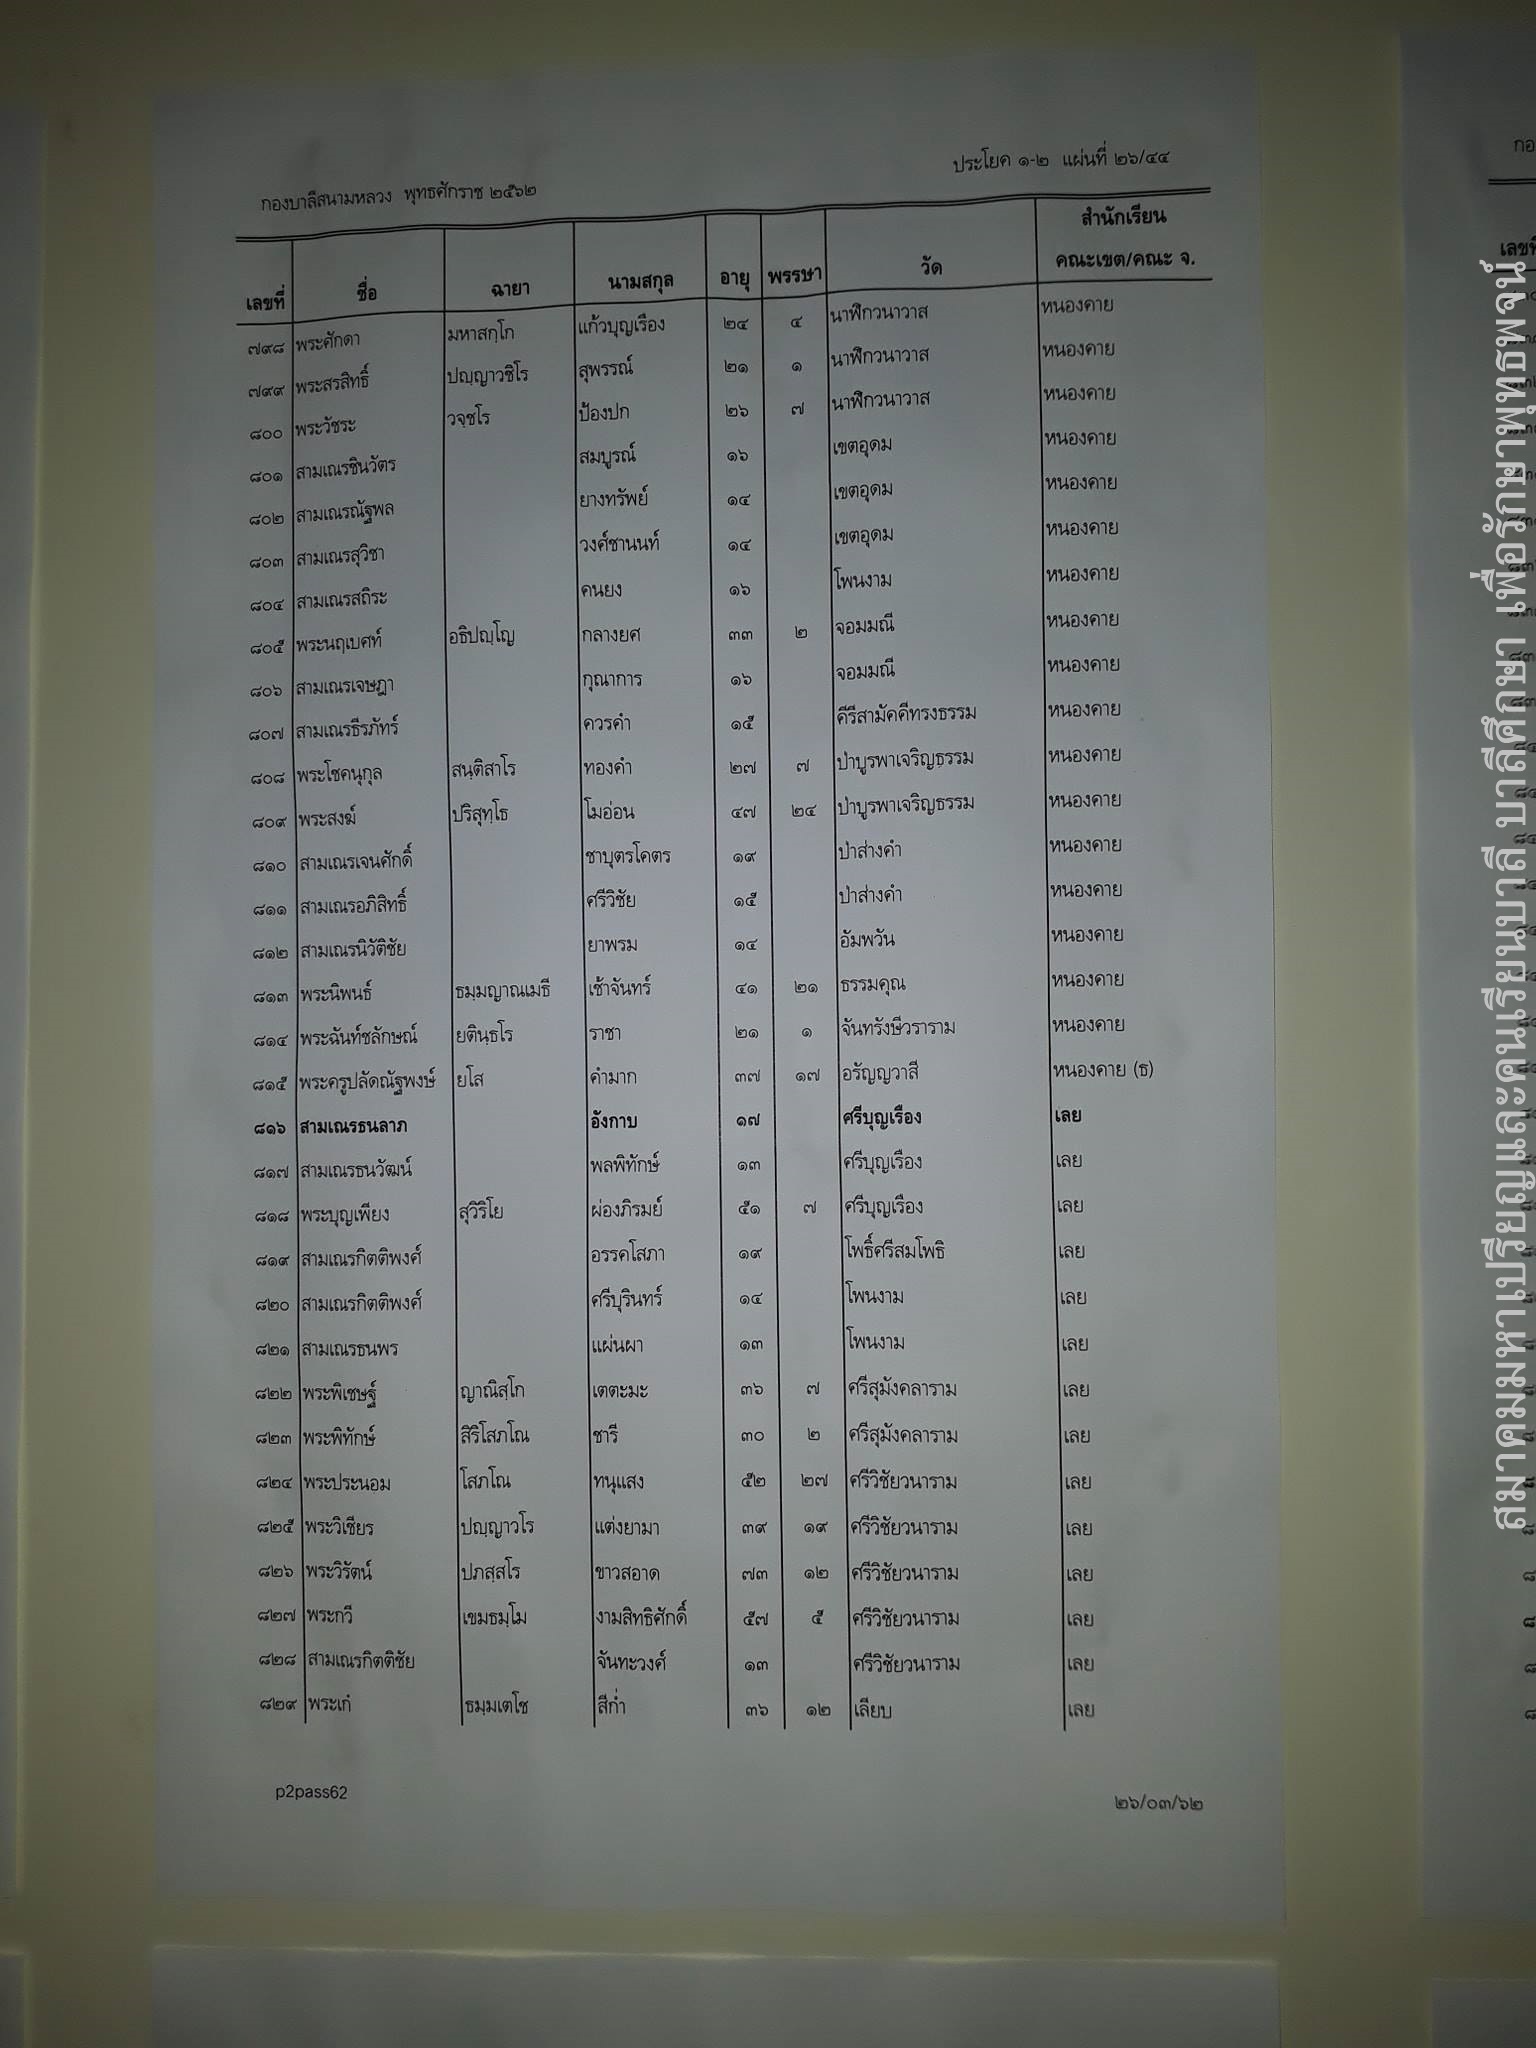 กองบาลีสนามหลวง พุทธศักราช ๒๕๖๒
ประโยค ๑-๒ แผ่นที่ ๒๖/๔๔
เลขที่ ชื่อ ฉายา นามสกุล อายุ พรรษา วัด สำนักเรียน คณะเขต/คณะ จ.
๗๙๘ พระศักดา มหาสกฺโก แก้วบุญเรือง ๒๔ ๔ นาฬิกวนาวาส หนองคาย
๗๙๙ พระสรสิทธิ์ ปญฺญาวชิโร สุพรรณ์ ๒๑ ๑ นาฬิกวนาวาส หนองคาย
๘๐๐ พระวัชระ วจฺชโร ป้องปก ๒๖ ๗ นาฬิกวนาวาส หนองคาย
๘๐๑ สามเณรชินวัตร สมบูรณ์ ๑๖ เขตอุดม หนองคาย
๘๐๒ สามเณรณัฐพล ยางทรัพย์ ๑๔ เขตอุดม หนองคาย
๘๐๓ สามเณรสุวิชา วงศ์ชานนท์ ๑๔ เขตอุดม หนองคาย
๘๐๔ สามเณรสถิระ คนยง ๑๖ โพนงาม หนองคาย
๘๐๕ พระนฤเบศท์ อธิปญฺโญ กลางยศ ๓๓ ๒ จอมมณี หนองคาย
๘๐๖ สามเณรเจษฎา กุณาการ ๑๖ จอมมณี หนองคาย
๘๐๗ สามเณรธีรภัทร์ ควรคำ ๑๕ คีรีสามัคคีทรงธรรม หนองคาย
๘๐๘ พระโชคนุกุล สนฺติสาโร ทองคำ ๒๗ ๗ ป่าบูรพาเจริญธรรม หนองคาย
๘๐๙ พระสงฆ์ ปริสุทฺโธ โมอ่อน ๔๗ ๒๔ ป่าบูรพาเจริญธรรม หนองคาย
๘๑๐ สามเณรเจนศักดิ์ ชาบุตรโคตร ๑๙ ป่าส่างคำ หนองคาย
๘๑๑ สามเณรอภิสิทธิ์ ศรีวิชัย ๑๕ ป่าส่างคำ หนองคาย
๘๑๒ สามเณรนิวัติชัย ยาพรม ๑๔ อัมพวัน หนองคาย
๘๑๓ พระนิพนธ์ ธมฺมญาณเมธี เช้าจันทร์ ๔๑ ๒๑ ธรรมคุณ หนองคาย
๘๑๔ พระฉันท์ชลักษณ์ ยตินฺธโร ราชา ๒๑ ๑ จันทรังษีวราราม หนองคาย
๘๑๕ พระครูปลัดณัฐพงษ์ ยโส คำมาก ๓๗ ๑๗ อรัญญวาสี หนองคาย (ธ)
๘๑๖ สามเณรธนลาภ อังกาบ ๑๗ ศรีบุญเรือง เลย
๘๑๗ สามเณรธนวัฒน์ พลพิทักษ์ ๑๓ ศรีบุญเรือง เลย
๘๑๘ พระบุญเพียง สุวิริโย ผ่องภิรมย์ ๕๑ ๗ ศรีบุญเรือง เลย
๘๑๙ สามเณรกิตติพงศ์ อรรคโสภา ๑๙ โพธิ์ศรีสมโพธิ เลย
๘๒๐ สามเณรกิตติพงศ์ ศรีบุรินทร์ ๑๔ โพนงาม เลย
๘๒๑ สามเณรธนพร แผ่นผา ๑๓ โพนงาม เลย
๘๒๒ พระพิเชษฐ์ ญาณิสฺโก เตตะมะ ๓๖ ๗ ศรีสุมังคลาราม เลย
๘๒๓ พระพิทักษ์ สิริโสภโณ ชารี ๓๐ ๒ ศรีสุมังคลาราม เลย
๘๒๔ พระประนอม โสภโณ ทนุแสง ๕๒ ๒๗ ศรีวิชัยวนาราม เลย
๘๒๕ พระวิเชียร ปญฺญาวโร แต่งยามา ๓๙ ๑๙ ศรีวิชัยวนาราม เลย
๘๒๖ พระวิรัตน์ ปภสฺสโร ขาวสอาด ๗๓ ๑๒ ศรีวิชัยวนาราม เลย
๘๒๗ พระกวี เขมธมฺโม งามสิทธิศักดิ์ ๕๗ ๕ ศรีวิชัยวนาราม เลย
๘๒๘ สามเณรกิตติชัย จันทะวงศ์ ๑๓ ศรีวิชัยวนาราม เลย
๘๒๙ พระเก๋ ธมฺมเตโช สีก่ำ ๓๖ ๑๒ เลียบ เลย
p2pass62
๒๖/๐๓/๖๒
สมาคมมหาเปรียญและคนเรียนบาลี บาลีศึกษา เพื่อรักษาพุทธพจน์